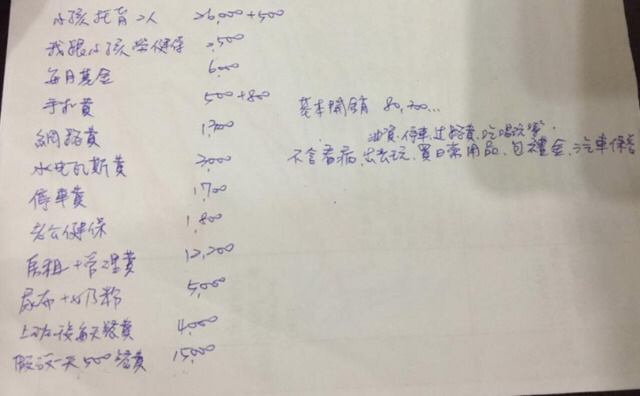 小孩托育2人 26,000+500
我跟小孩勞健保 2,500
每月基金 6,000
手機費 500+800
基本開銷 80,700...
網路費 1,300
油資、停車、过路費、吃喝玩樂、
不含看病、出去玩、買日常用品、包禮金、汽車保養
水电瓦斯費 3,000
停車費 1,700
老公健保 1,800
房租+管理費 12,200
尿布+奶粉 5,000
上班後每天餐費 4,000
假設一天500餐費 15,000